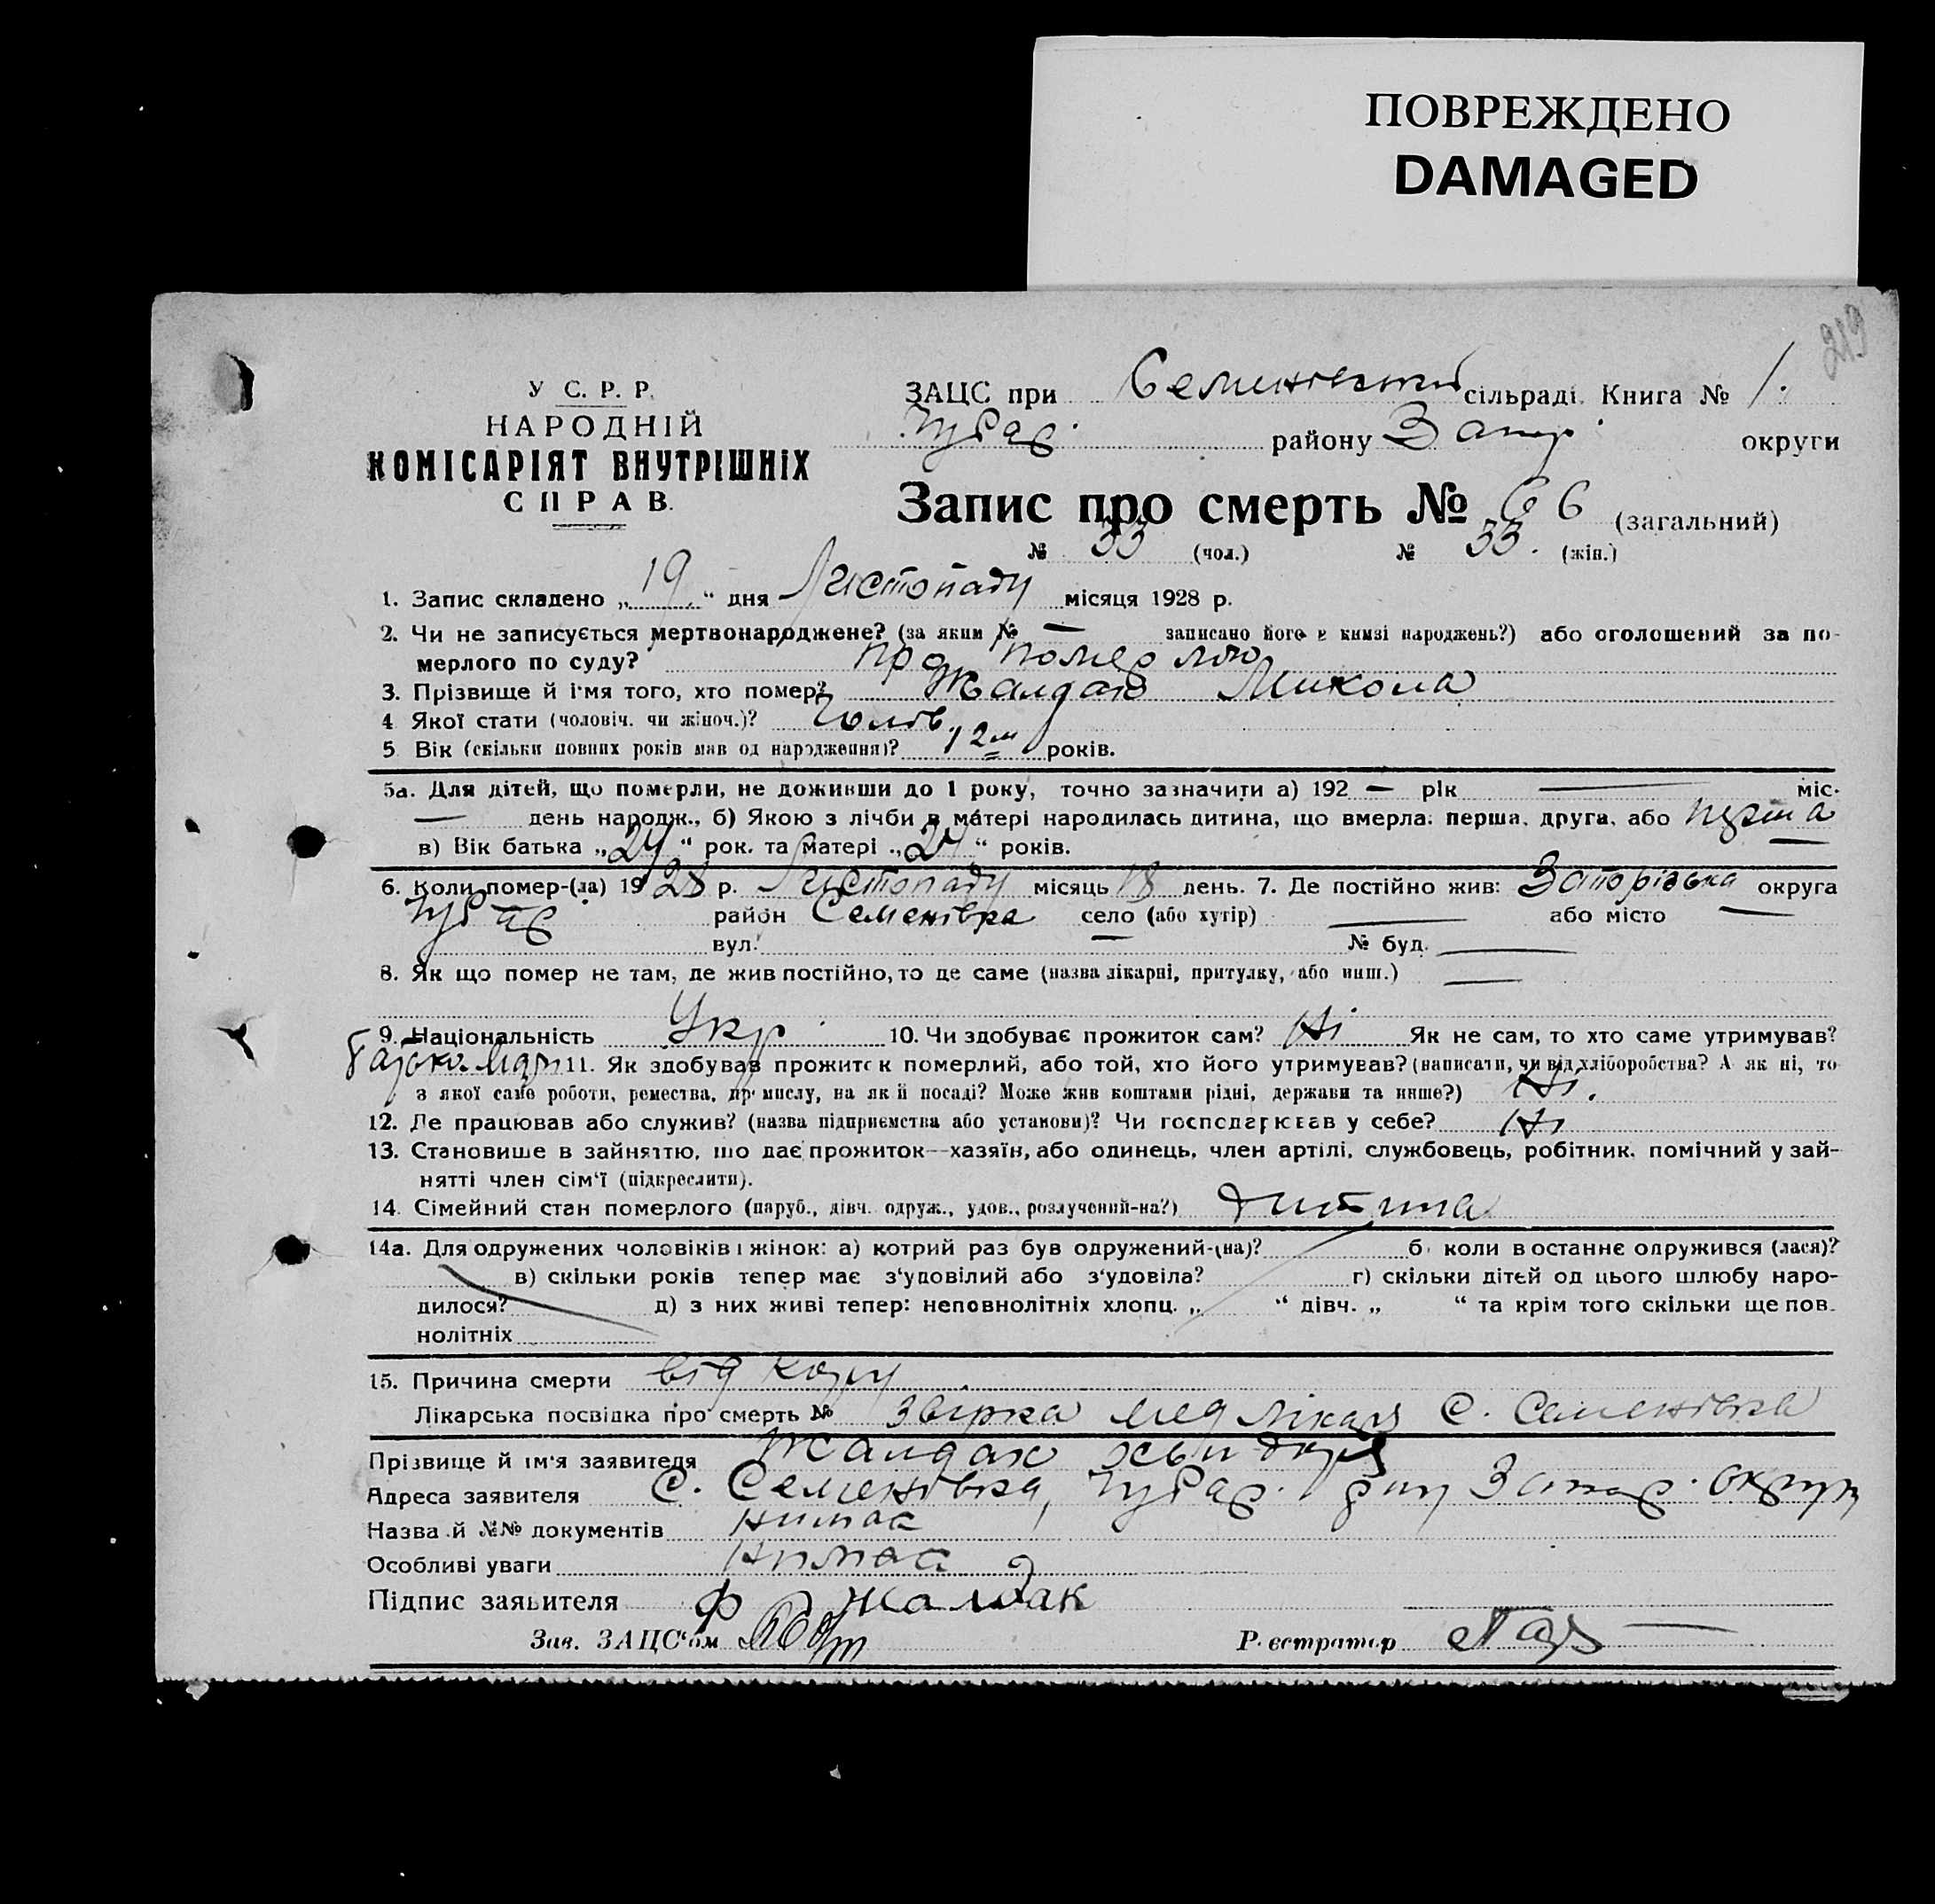 ПОВРЕЖДЕНО
DAMAGED
219
У С. Р. Р.
НАРОДНІЙ
КОМІСАРІЯТ ВНУТРІШНІХ
СПРАВ.
ЗАЦС при Семенівській сільраді. Книга № 1.
Чубар. району Запор. округи
Запис про смерть № 66 (загальний)
№ 33 (чол.) № 33. (жін.)
1. Запис складено „19“ дня Листопаду місяця 1928 р.
2. Чи не записується мертвонароджене? (за яким № — записано його в книзі народжень?) або оголошений за по-
мерлого по суду? про померлого
3. Прізвище й ім'я того, хто помер? Жалдак Микола
4 Якої стати (чоловіч. чи жіноч.)? Чолов.
5 Вік (скільки повних років мав од народження)? 12 м років.
5а. Для дітей, що померли, не доживши до 1 року, точно зазначити а) 192 — рік — міс.
— день народж., б) Якою з лічби в матері народилась дитина, що вмерла: перша, друга, або перша
в) Вік батька „24“ рок. та матері „24“ років.
6. Коли помер-(ла) 1928 р. Листопаду місяць 18 день. 7. Де постійно жив: Запорізька округа
Чубар район Семенівка село (або хутір) — або місто —
вул. — № буд. —
8. Як що помер не там, де жив постійно, то де саме (назва лікарні, притулку, або инш.) —
9. Національність Укр. 10. Чи здобуває прожиток сам? Ні Як не сам, то хто саме утримував?
11. Як здобував прожиток померлий, або той, хто його утримував? (написати, чи від хліборобства? А як ні, то
з якої саме роботи, ремества, промислу, на якій посаді? Може жив коштами рідні, держави та инше?) Ні.
12. Де працював або служив? (назва підприємства або установи)? Чи господарював у себе? Ні
13. Становище в зайняттю, що дає прожиток—хазяїн, або одинець, член артілі, службовець, робітник, помічний у зай-
нятті член сім'ї (підкреслити).
14. Сімейний стан померлого (паруб., дівч. одруж., удов., розлучений-на?) дитина
14а. Для одружених чоловіків і жінок: а) котрий раз був одружений-(на)? б) коли в останнє одружився (лася)?
в) скільки років тепер має з'удовілий або з'удовіла? г) скільки дітей од цього шлюбу наро-
дилося? д) з них живі тепер: неповнолітніх хлопц. „ “ дівч. „ “ та крім того скільки ще пов-
нолітніх
15. Причина смерти від кору
Лікарська посвідка про смерть № лікаря С. Семенівка
Прізвище й ім'я заявителя Жалдак
Адреса заявителя С. Семенівка, Чубар. р-ну Запор. округи
Назва й №№ документів Нимає
Особливі уваги Нимає
Підпис заявителя Ф Жалдак
Зав. ЗАЦС'ом
Реєстратор